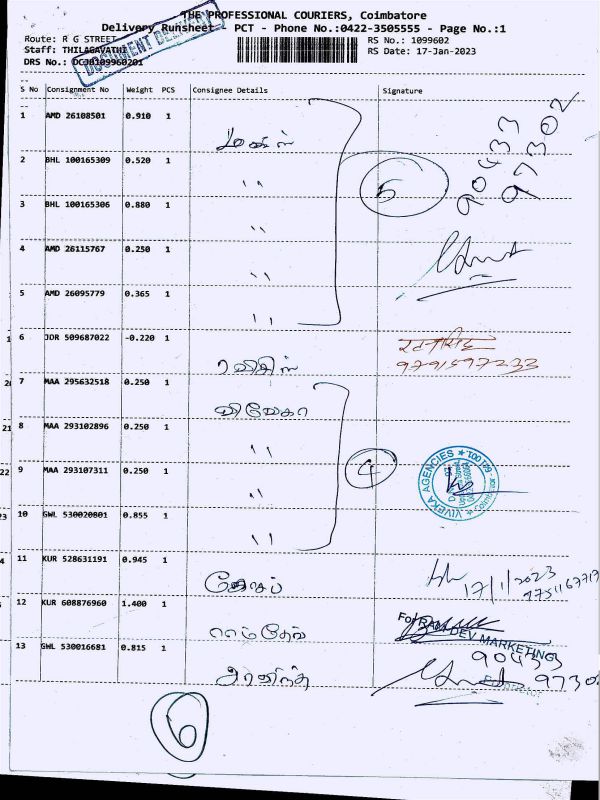 THE PROFESSIONAL COURIERS, Coimbatore
Delivery Runsheet - PCT - Phone No.:0422-3505555 - Page No.:1
Route: R G STREET
RS No.: 1099602
Staff: THILAGAVATHI
RS Date: 17-Jan-2023
DRS No.: DCJB109960201
DOCUMENT DELIVERY
S No Consignment No Weight PCS Consignee Details Signature
1 AMD 26108501 0.910 1
2 BHL 100165309 0.520 1 ''
3 BHL 100165306 0.880 1 ''
4 AMD 26115767 0.250 1 ''
5 AMD 26095779 0.365 1 ''
5
90433
97302
6 JDR 509687022 -0.220 1
9791597233
7 MAA 295632518 0.250 1 விவேகா
8 MAA 293102896 0.250 1 ''
9 MAA 293107311 0.250 1 ''
10 GWL 530020801 0.855 1 ''
4
VIVEKA AGENCIES
11 KUR 528631191 0.945 1
17/1/2023
12 KUR 608876960 1.400 1 ராம்தேவ்
For RAM DEV MARKETING
13 GWL 530016681 0.815 1 அரவிந்த்
90433
9730
6